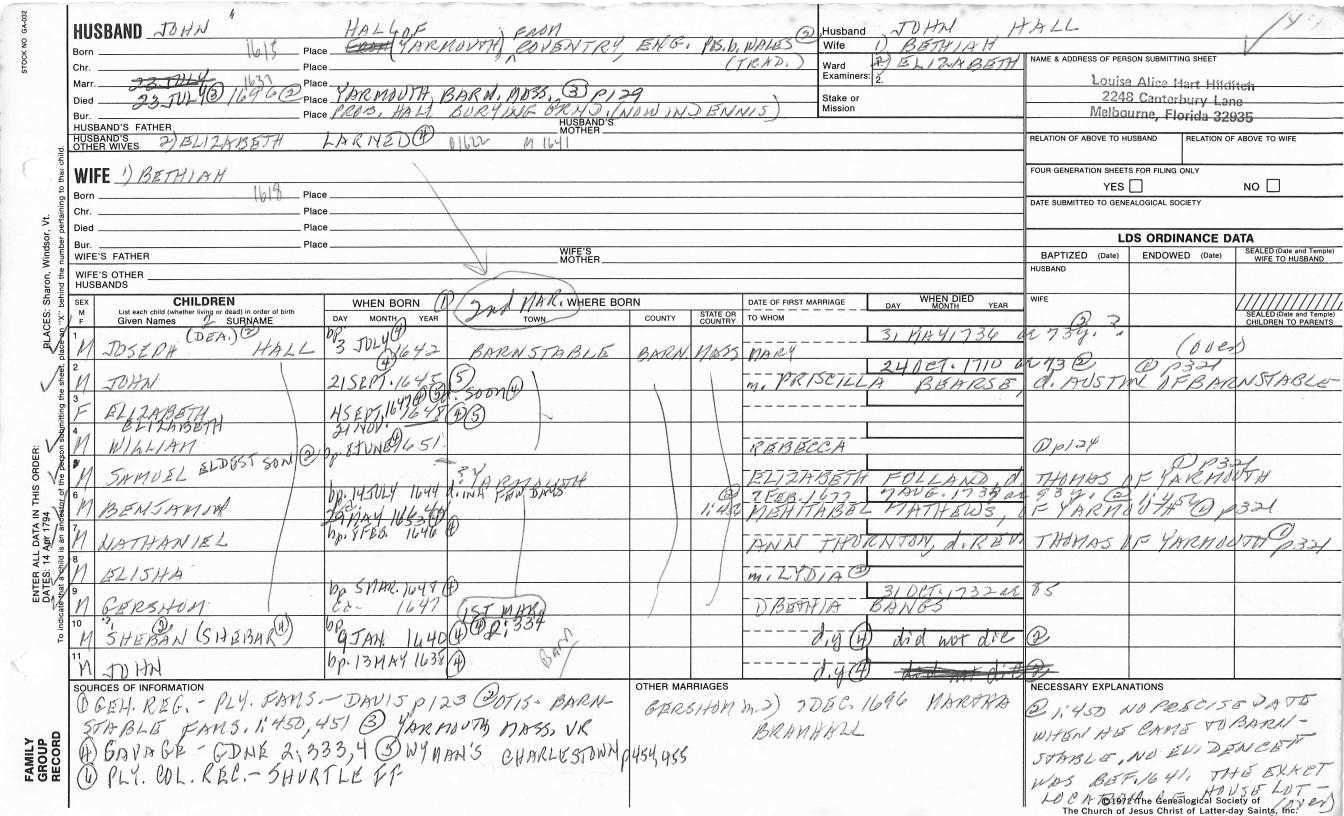 STOCK NO. GA-032
HUSBAND JOHN HALL OF (YARMOUTH) FROM COVENTRY ENG. POS. b. WALES ②
Born 1615 Place (TRAD.)
Chr. Place
Marr. 23 JULY 1637 Place
Died 23 JULY ③ 1696 ② Place YARMOUTH, BARN. MASS. ③ p129
Bur. Place PROB. HALL BURYING GRND. (NOW IN DENNIS)
HUSBAND'S FATHER HUSBAND'S MOTHER
HUSBAND'S OTHER WIVES 2) ELIZABETH LARNED ④ b1622 M 1641
Husband JOHN HALL
Wife 1) BETHIAH
2) ELIZABETH
Ward
Examiners: 2.
Stake or Mission
NAME & ADDRESS OF PERSON SUBMITTING SHEET
Louise Alice Hart Hilditch
2248 Canterbury Lane
Melbourne, Florida 32935
RELATION OF ABOVE TO HUSBAND RELATION OF ABOVE TO WIFE
FOUR GENERATION SHEETS FOR FILING ONLY
YES NO
DATE SUBMITTED TO GENEALOGICAL SOCIETY
WIFE 1) BETHIAH
Born 1618 Place
Chr. Place
Died Place
Bur. Place
WIFE'S FATHER WIFE'S MOTHER
WIFE'S OTHER HUSBANDS
LDS ORDINANCE DATA
BAPTIZED (Date) ENDOWED (Date) SEALED (Date and Temple) WIFE TO HUSBAND
HUSBAND
WIFE
SEALED (Date and Temple) CHILDREN TO PARENTS
SEX M F
CHILDREN
List each child (whether living or dead) in order of birth
Given Names SURNAME
WHEN BORN ① 2nd MAR. WHERE BORN
DAY MONTH YEAR TOWN COUNTY STATE OR COUNTRY
DATE OF FIRST MARRIAGE
TO WHOM
WHEN DIED
DAY MONTH YEAR
1 M JOSEPH (DEA.) ② HALL bp. 3 JULY ④ 1642 BARNSTABLE BARN. MASS MARY 31 MAY 1736 æ 73y. ② ? (over)
2 M JOHN 21 SEPT. 1645 ④ ⑤ m. PRISCILLA BEARSE, d. AUSTIN OF BARNSTABLE 24 OCT. 1710 æ 73 ② ① p321
3 F ELIZABETH 4 SEPT. 1647 d. SOON ④
ELIZABETH 21 NOV. 1648 ④ ⑤
4 M WILLIAM bp. 8 JUNE ④ 1651 REBECCA ① p124
5 M SAMUEL ELDEST SON ② ?YARMOUTH ELIZABETH FOLLAND, d. THOMAS OF YARMOUTH ① p321
6 M BENJAMIN bp. 14 JULY 1644 d. IN A FEW DAYS
29 MAY 1653 ② 1:450 7 FEB. 1677 7 AUG. 1735 æ 93y. ② 1:450
MEHITABEL MATHEWS, OF YARMOUTH ① p321
7 M NATHANIEL bp. 8 FEB. 1646 ④ ANN THORNTON, d. REV. THOMAS OF YARMOUTH ① p321
8 M ELISHA m. LYDIA ③
9 M GERSHOM bp. 5 MAR. 1649 ④ 31 OCT. 1732 æ 85
ca. 1647 1) BETHIA BANGS
10 M SHEBAN ② (SHEBAR ④) bp. 9 JAN. 1640 ④ (1ST MAR.) ④ 2:334 d.y ④ did not die ②
11 M JOHN bp. 13 MAY 1638 ④ BARN d.y ④ did not die ②
SOURCES OF INFORMATION
① GEN. REG. - PLY. FAMS. - DAVIS p123 ② OTIS - BARN-
STABLE FAMS. 1:450, 451 ③ YARMOUTH, MASS. VR
④ SAVAGE - GDNE 2:333,4 ⑤ WYMAN'S CHARLESTOWN p454,455
⑥ PLY. COL. REC. - SHURTLEFF
OTHER MARRIAGES
GERSHOM m. 2) 7 DEC. 1696 MARTHA
BRAMHALL
NECESSARY EXPLANATIONS
② 1:450 NO PRECISE DATE
WHEN HE CAME TO BARN-
STABLE, NO EVIDENCE IT
WAS BEF. 1641. THE EXACT
LOCATION OF HOUSE LOT -
(over)
©1972 The Genealogical Society of
The Church of Jesus Christ of Latter-day Saints, Inc.
PLACES: Sharon, Windsor, Vt.
ENTER ALL DATA IN THIS ORDER:
DATES: 14 Apr 1794
To indicate that a child is an ancestor of the person submitting the sheet, place an "X" behind the number pertaining to that child.
FAMILY GROUP RECORD